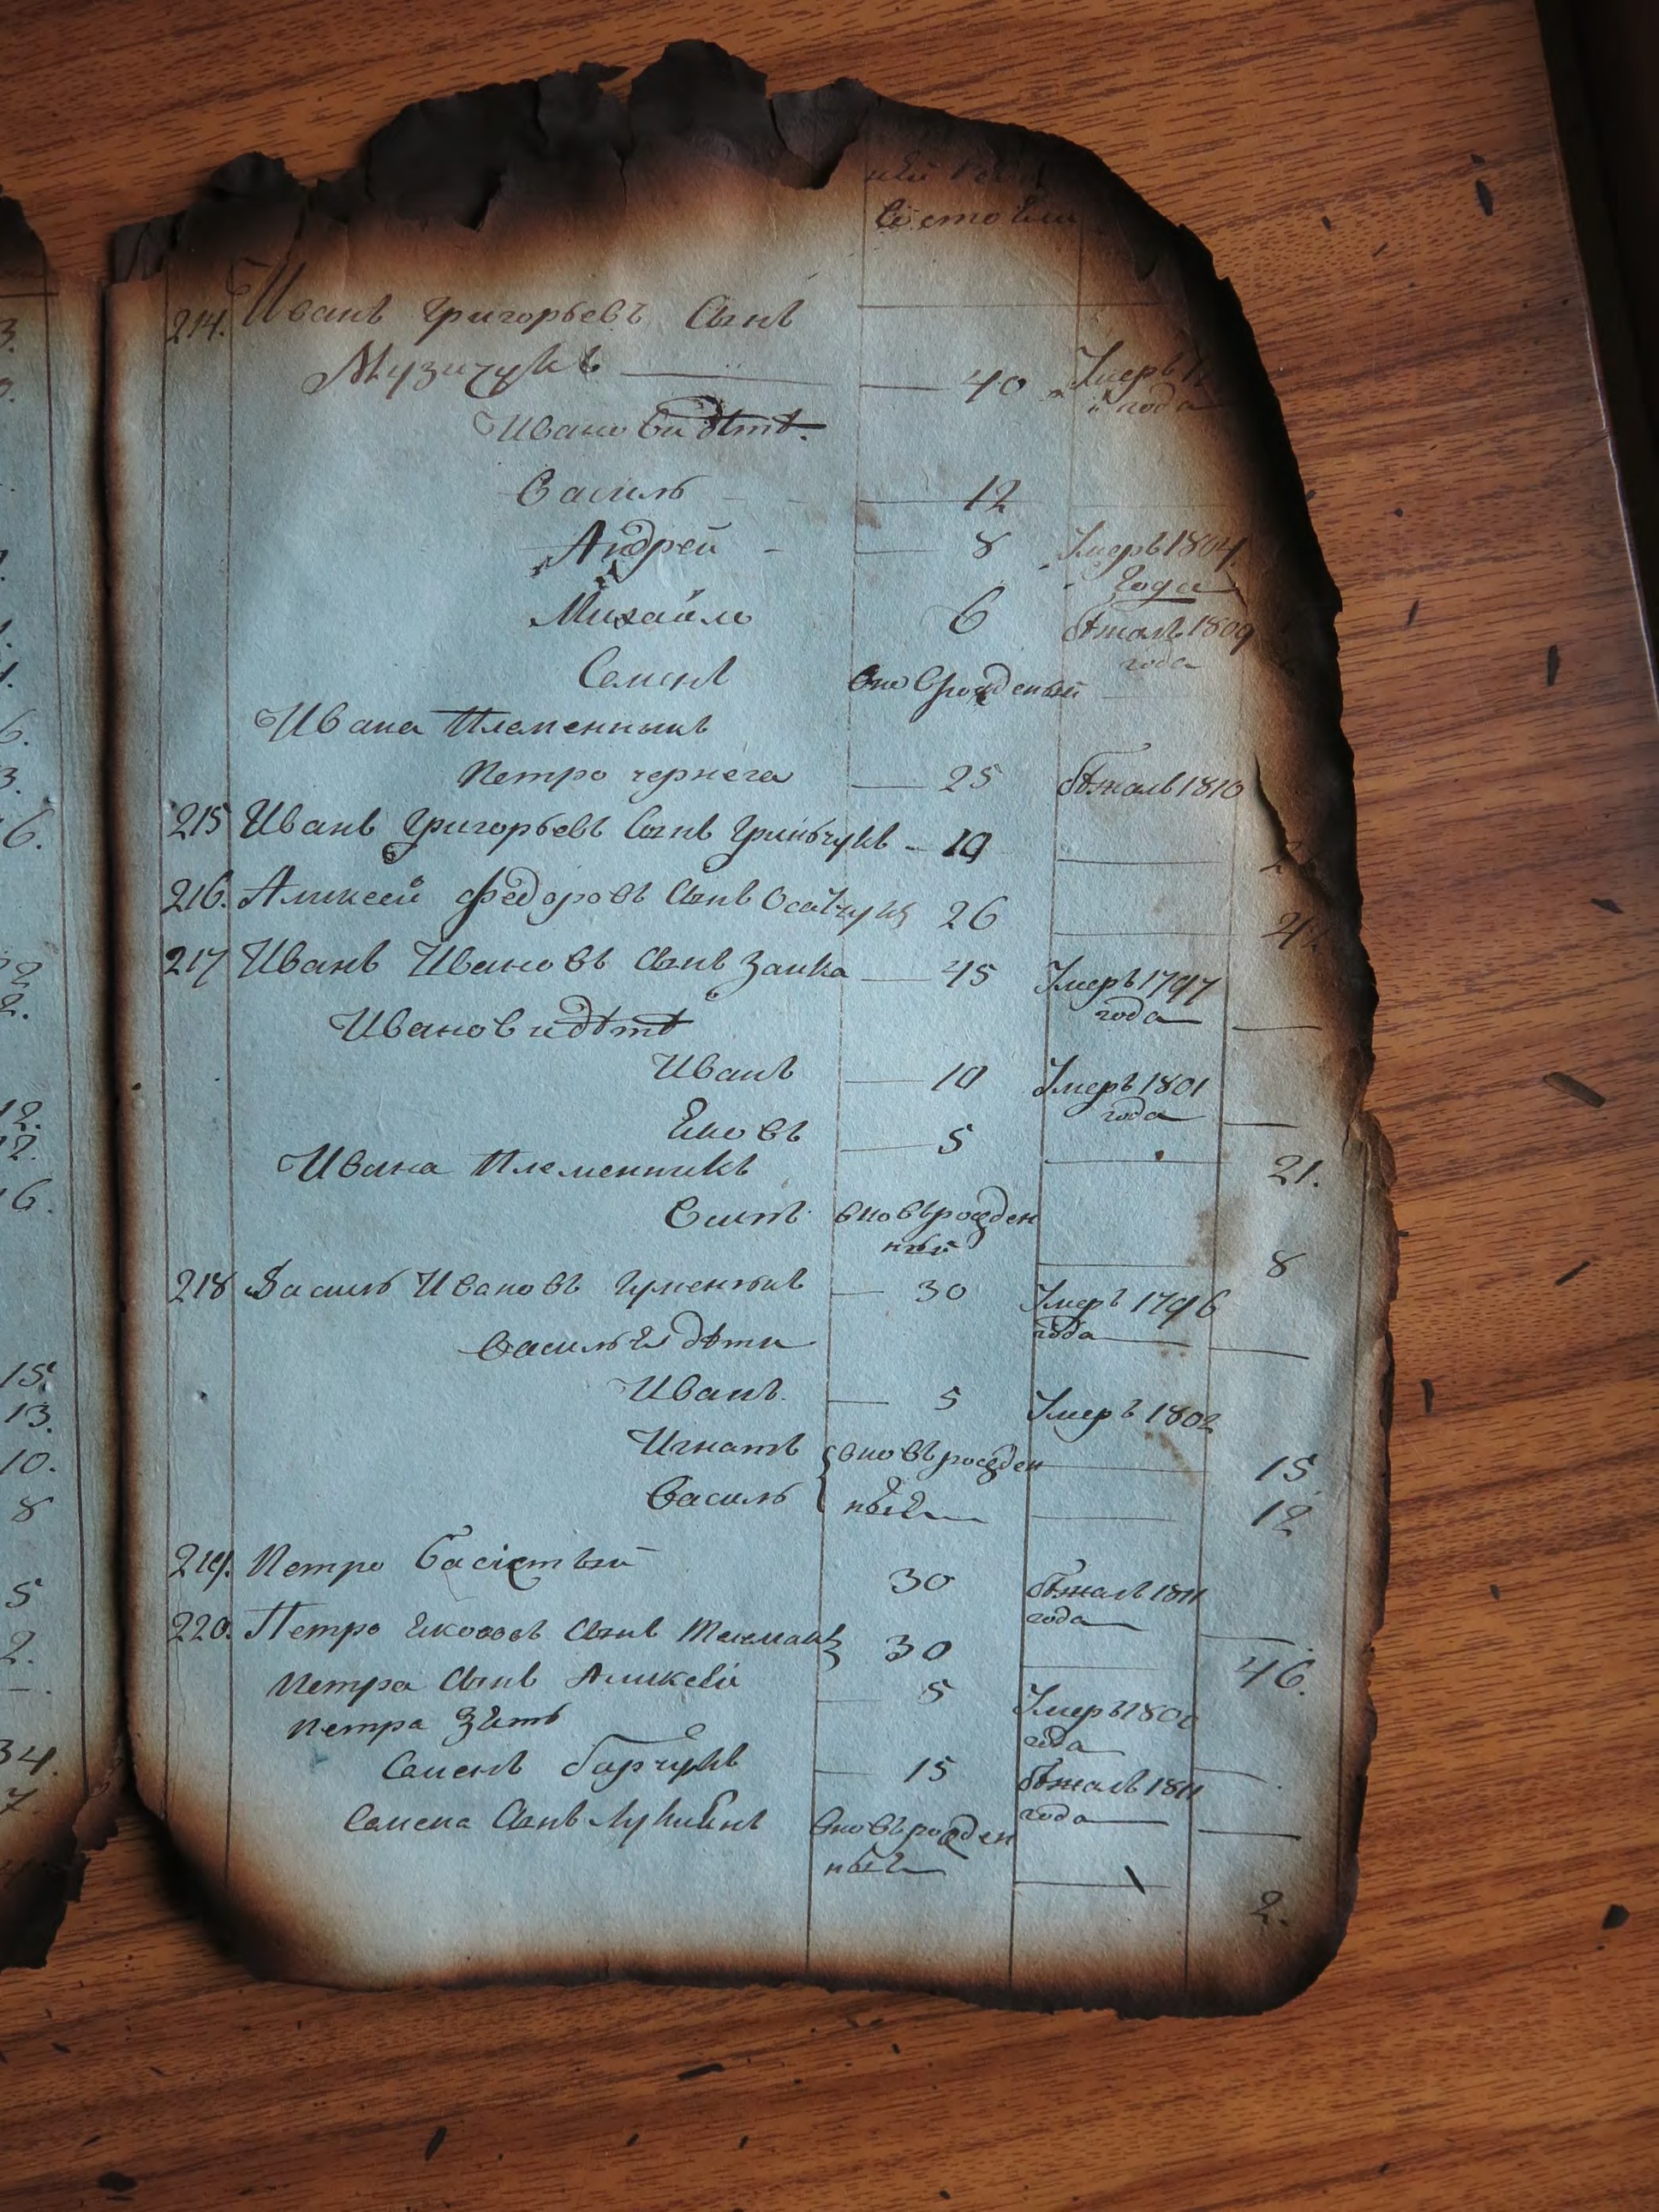 ней
состояли
214. Иванъ Григорьевъ Сынъ
Музичукъ 40 Умеръ
года
Ивановы дѣтѣ.
Василь 12
Андрей 8 Умеръ 1804
года
Михайло 6 бѣжалъ 1809
года
Семенъ вновьрожденый
Ивана Племенникъ
Петро чернега 25 бѣжалъ 1810
215 Иванъ Григорьевъ Сынъ Гриньчукъ 10
216. Аликсей Федоровъ Сынъ Осатчукъ 26
217 Иванъ Ивановъ Сынъ Заика 45 Умеръ 1797
года
Иванови дѣтѣ
Иванъ 10 Умеръ 1801
года
Яковъ 5 21.
Ивана Племенникъ
вновьрожден
ный 8
218 Василь Ивановъ Гуменюкъ 30 Умеръ 1796
года
Василья дѣти
Иванъ 5 Умеръ 1802
Игнатъ вновьрожден 15
Василь ныя 12
219. Петро Басистый 30 бѣжалъ 1811
года
220. Петро Яковов Сынъ 30 46.
Петра Сынъ Аликсей 5 Умеръ 1800
года
Петра Зять
Семенъ барчукъ 15 бѣжалъ 1811
года
Семена Сынъ Лукиянъ вновьрожден
ный 2.
3.
6.
3.
6.
2
2.
12.
2.
6.
15.
13.
10.
8
5
2.
34.
7.